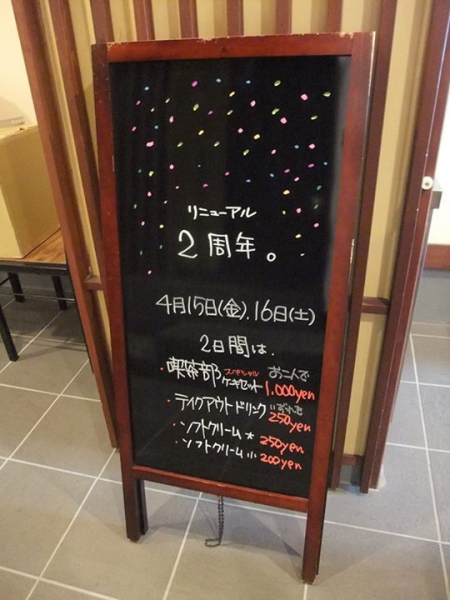 リニューアル
2周年。
4月15日(金).16日(土)
2日間は、
・喫茶部 スペシャル ケーキセット お二人で 1,000yen
・テイクアウトドリンク いずれも 250yen
・ソフトクリーム大 250yen
・ソフトクリーム小 200yen